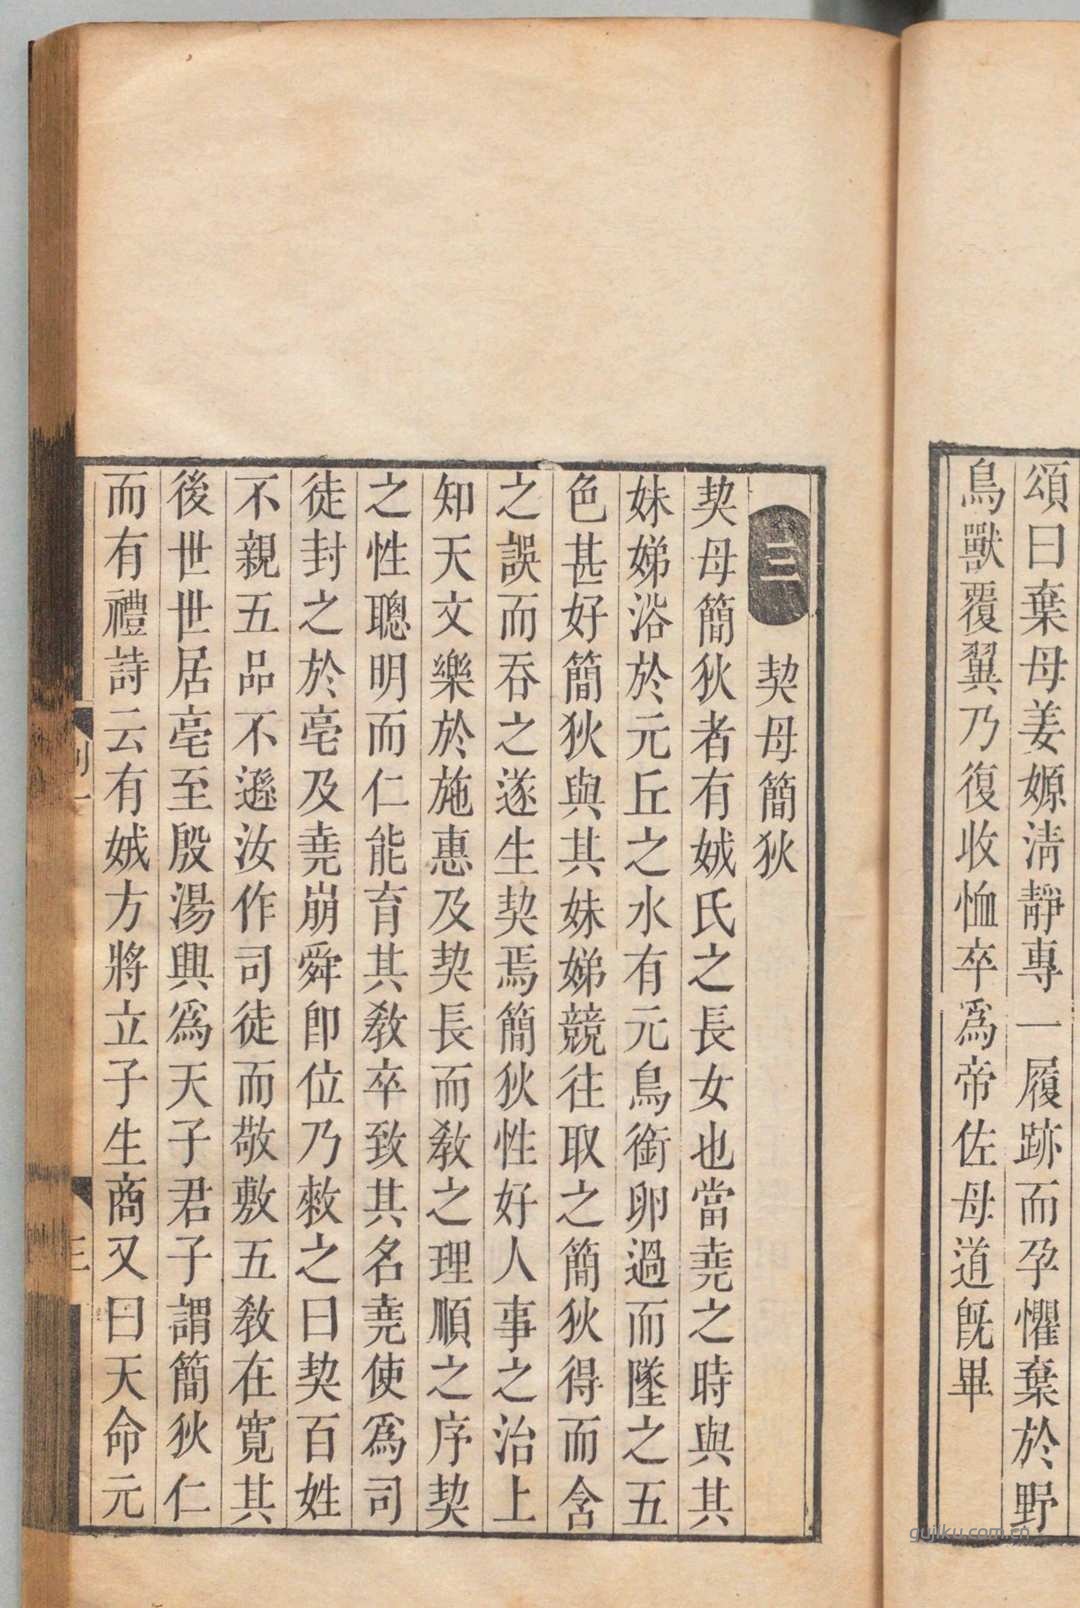 頌曰棄母姜嫄淸靜專一履跡而孕懼棄於野
鳥獸覆翼乃復收恤卒爲帝佐母道旣畢
三 契母簡狄
契母簡狄者有娀氏之長女也當堯之時與其
妹娣浴於元丘之水有元鳥銜卵過而墜之五
色甚好簡狄與其妹娣競往取之簡狄得而含
之誤而吞之遂生契焉簡狄性好人事之治上
知天文樂於施惠及契長而敎之理順之序契
之性聰明而仁能育其敎卒致其名堯使爲司
徒封之於亳及堯崩舜卽位乃敕之曰契百姓
不親五品不遜汝作司徒而敬敷五敎在寬其
後世世居亳至殷湯興爲天子君子謂簡狄仁
而有禮詩云有娀方將立子生商又曰天命元
列一
三
gujiku.com.cn